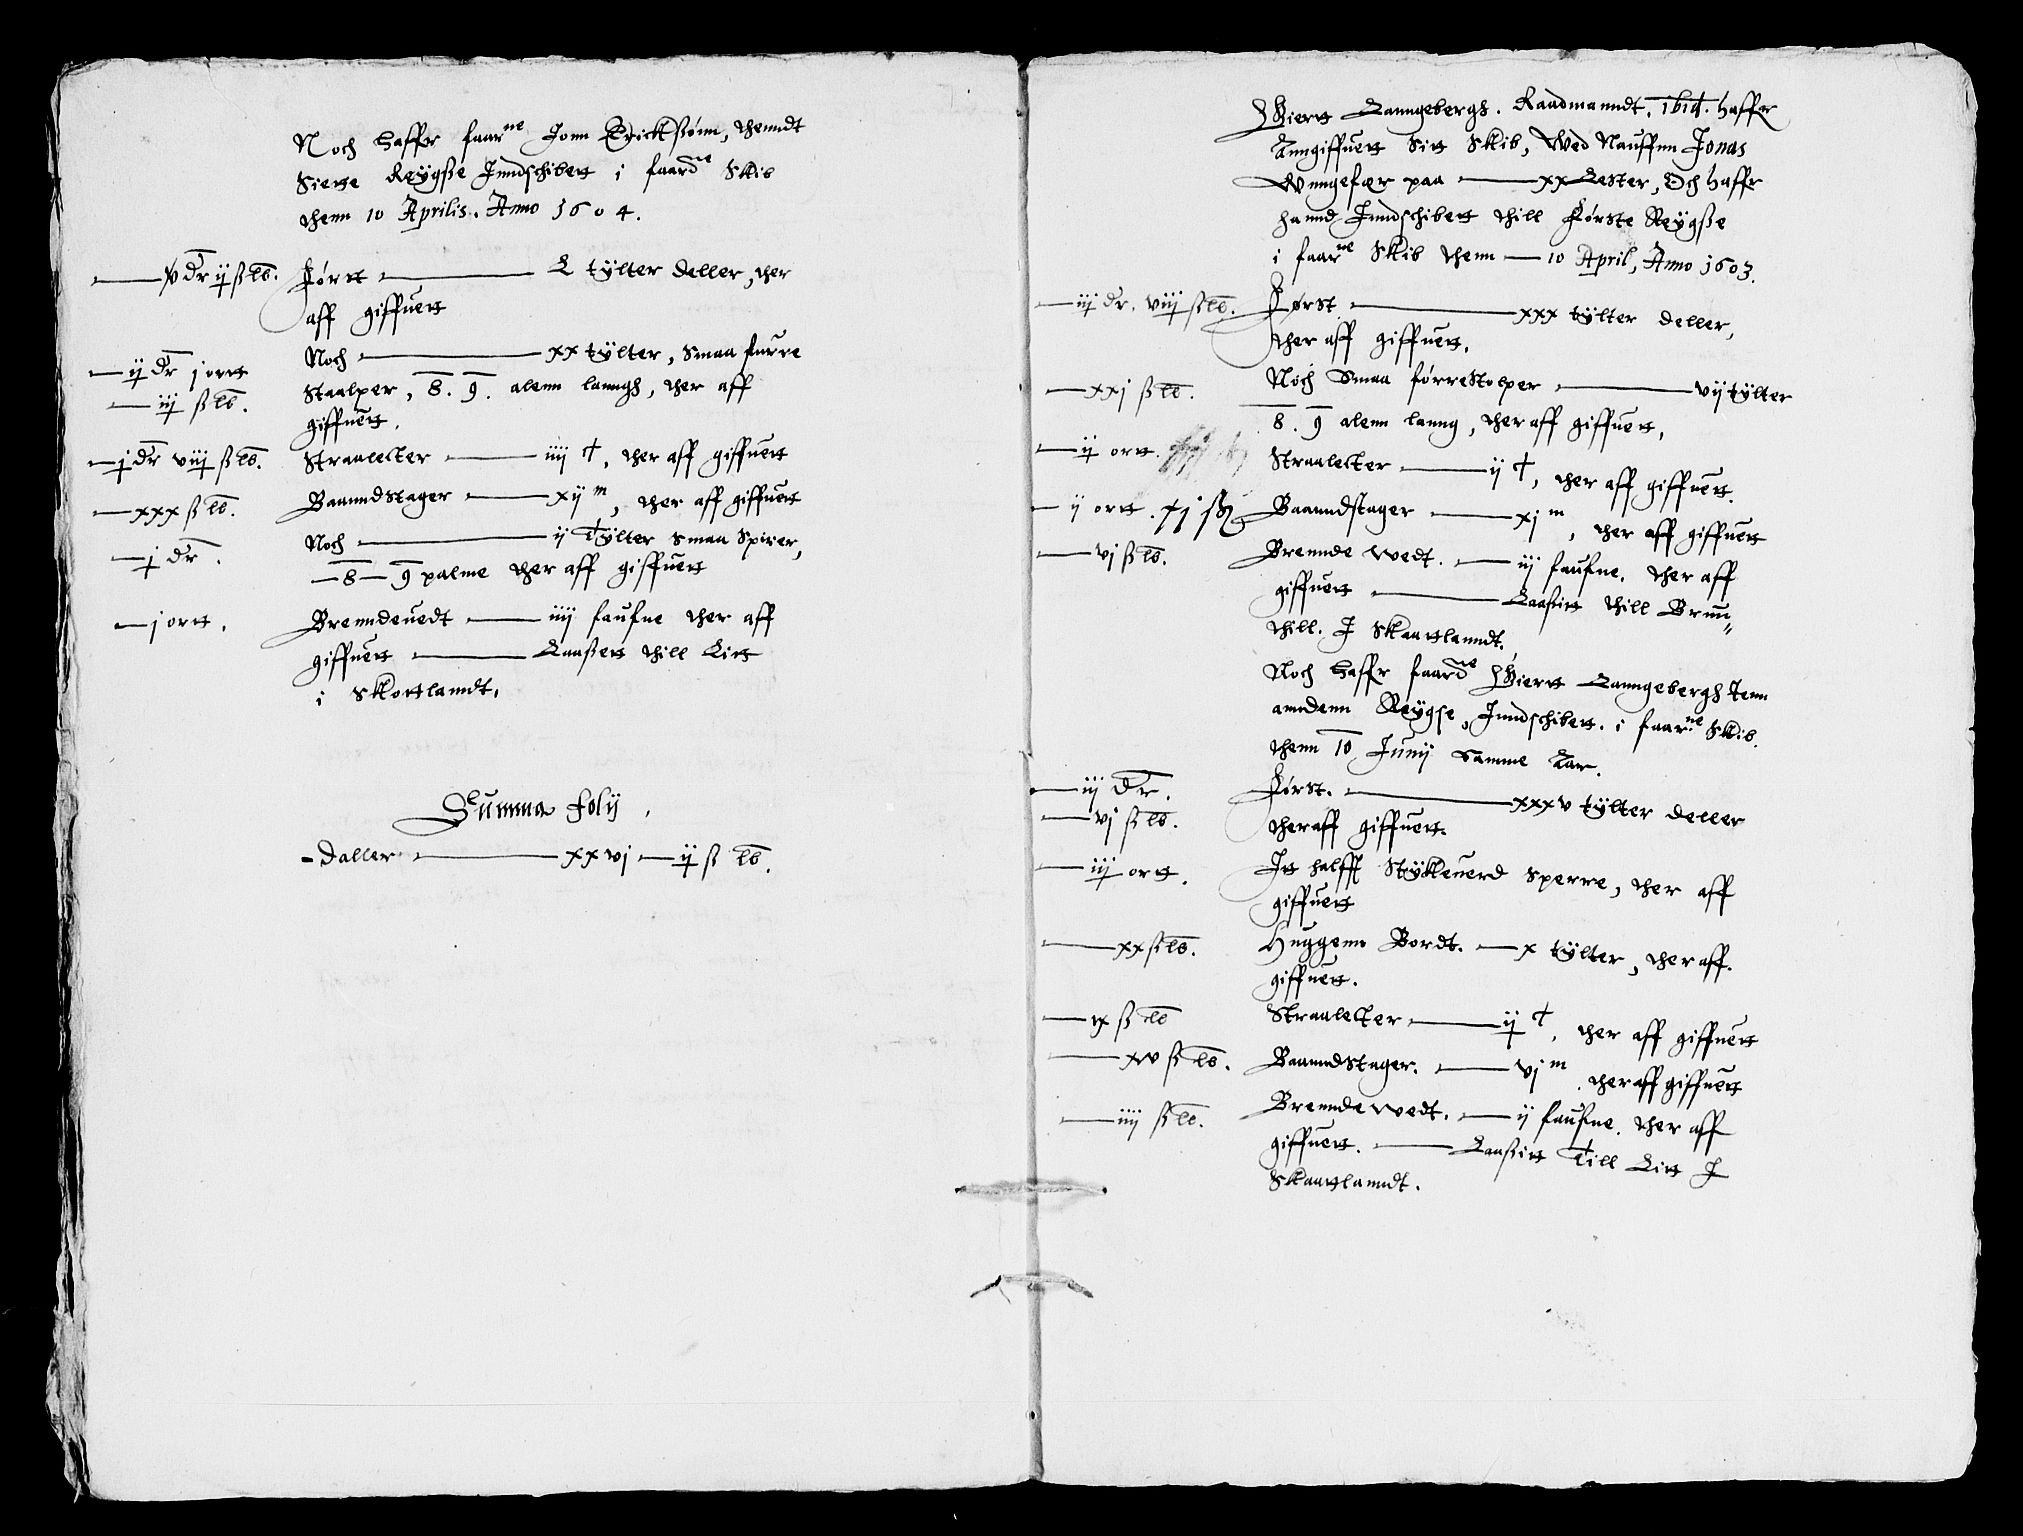 Noch Haffr faarne Jonn Erickßønn, thenndt
Siette Reÿgße Inndschibett i faardne Skib
thenn 10 Aprilis. Anno 1604.
v dr ij ß lb. Førtt L tÿlter deller, ther
aff giffuett
Noch xx tÿlter, smaa furre
ij dr j ortt
Staalper, 8. 9. alenn lanngh, ther aff
iij ß lb.
giffuett.
j dr viij ß lb. Straalecter iiij C, ther aff giffuett
xxx ß lb. Baanndstager xij m, ther aff giffuett
j dr. Noch ij Tÿlter smaa Spirer,
8 9 palme ther aff giffuett
j ortt. Brenndeuedt iiij faufne ther aff
giffuett Laaßett thill Litt
i Skottlanndt.
Summa folij.
Daller xxvj ij ß lb.
Giertt Lanngebergh. Raadmanndt. ibid. haffr
Anngiffuett Sitt Skib, Wed Nauffnn Jonas
Wnngefær paa xx Lester, Och haffr
hannd Inndschibett thill Første Reÿgße
i faarne Skib thenn 10 April, Anno 1603.
iij dr. viij ß lb. Først xxx tÿlter deller,
ther aff giffuett.
xxj ß lb. Noch Smaa førrestolper vij tÿlter
8. 9 alenn lanng, ther aff giffuett,
ij ortt. Straalecter ij C, ther aff giffuett.
ij ortt. xj ß Baanndstager xj m, ther aff giffuett
vj ß lb. Brennde wedt. iij faufne. ther aff
giffuett Laaßitt thill Brun
thill. I Skaattlanndt.
Noch Haffr faardne Giertt Lanngebergh Jenn
anndenn Reÿgse, Inndschibett. i faarne Skib.
thenn 10 Junij Samme Aar.
iij dr. Først. xxxv tÿlter deller
vj ß lb. ther aff giffuett.
iij ortt. Itt halfft Stÿkeuerd Sperre, ther aff
giffuett
xx ß lb. Huggenn Bordt. x tÿlter, ther aff.
giffuett.
ix ß lb Straalecter ij C, ther aff giffuett
xv ß lb. Baanndstager. vj m ther aff giffuett
iiij ß lb. Brennde wedt. ij faufne. ther aff
giffuett. Laaßitt Till Litt I
Skaattlanndt.